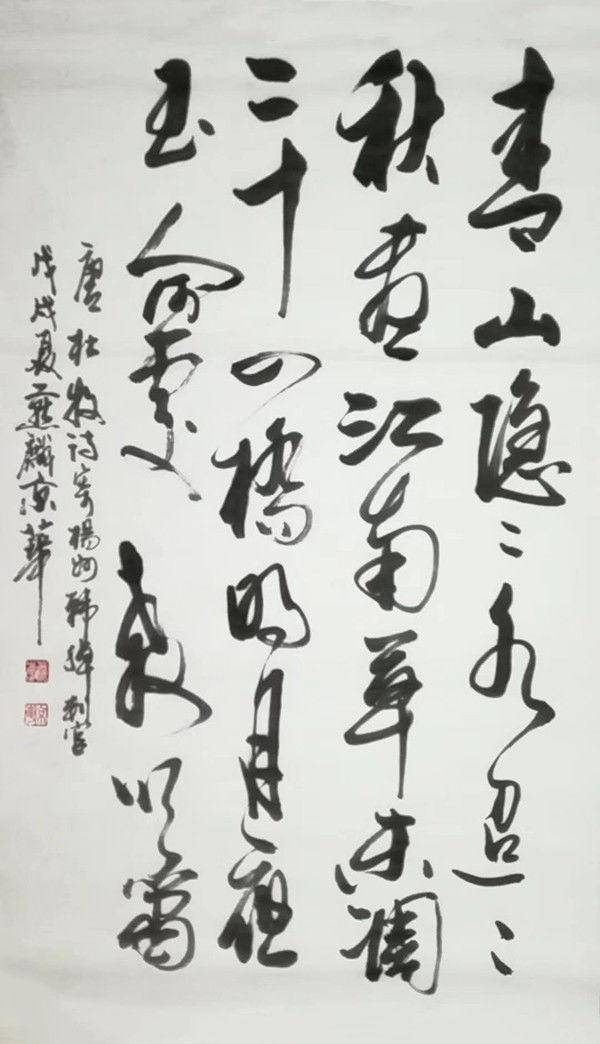 青山隐々水迢々
秋盡江南草未凋
二十四橋明月夜
玉人何處教吹簫
唐杜牧诗寄楊州韩绰判官
戊戌夏燕麟京華